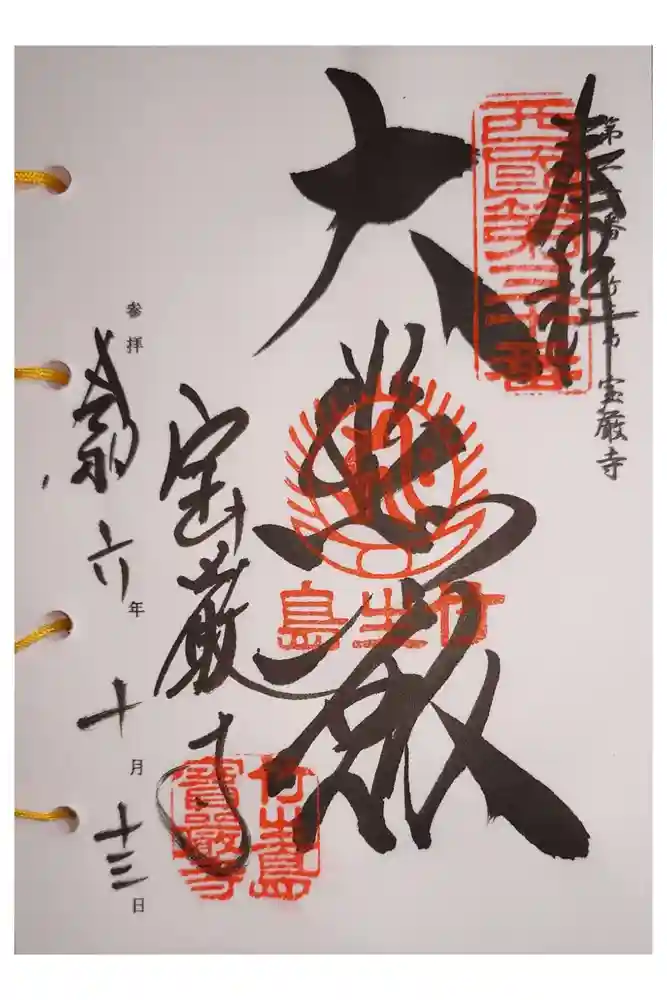 第三十番 竹生島 宝厳寺
奉拝
西國第三十番
大悲殿
竹生島
宝厳寺
竹生島
寶嚴寺
参拝 令和六年十月十三日